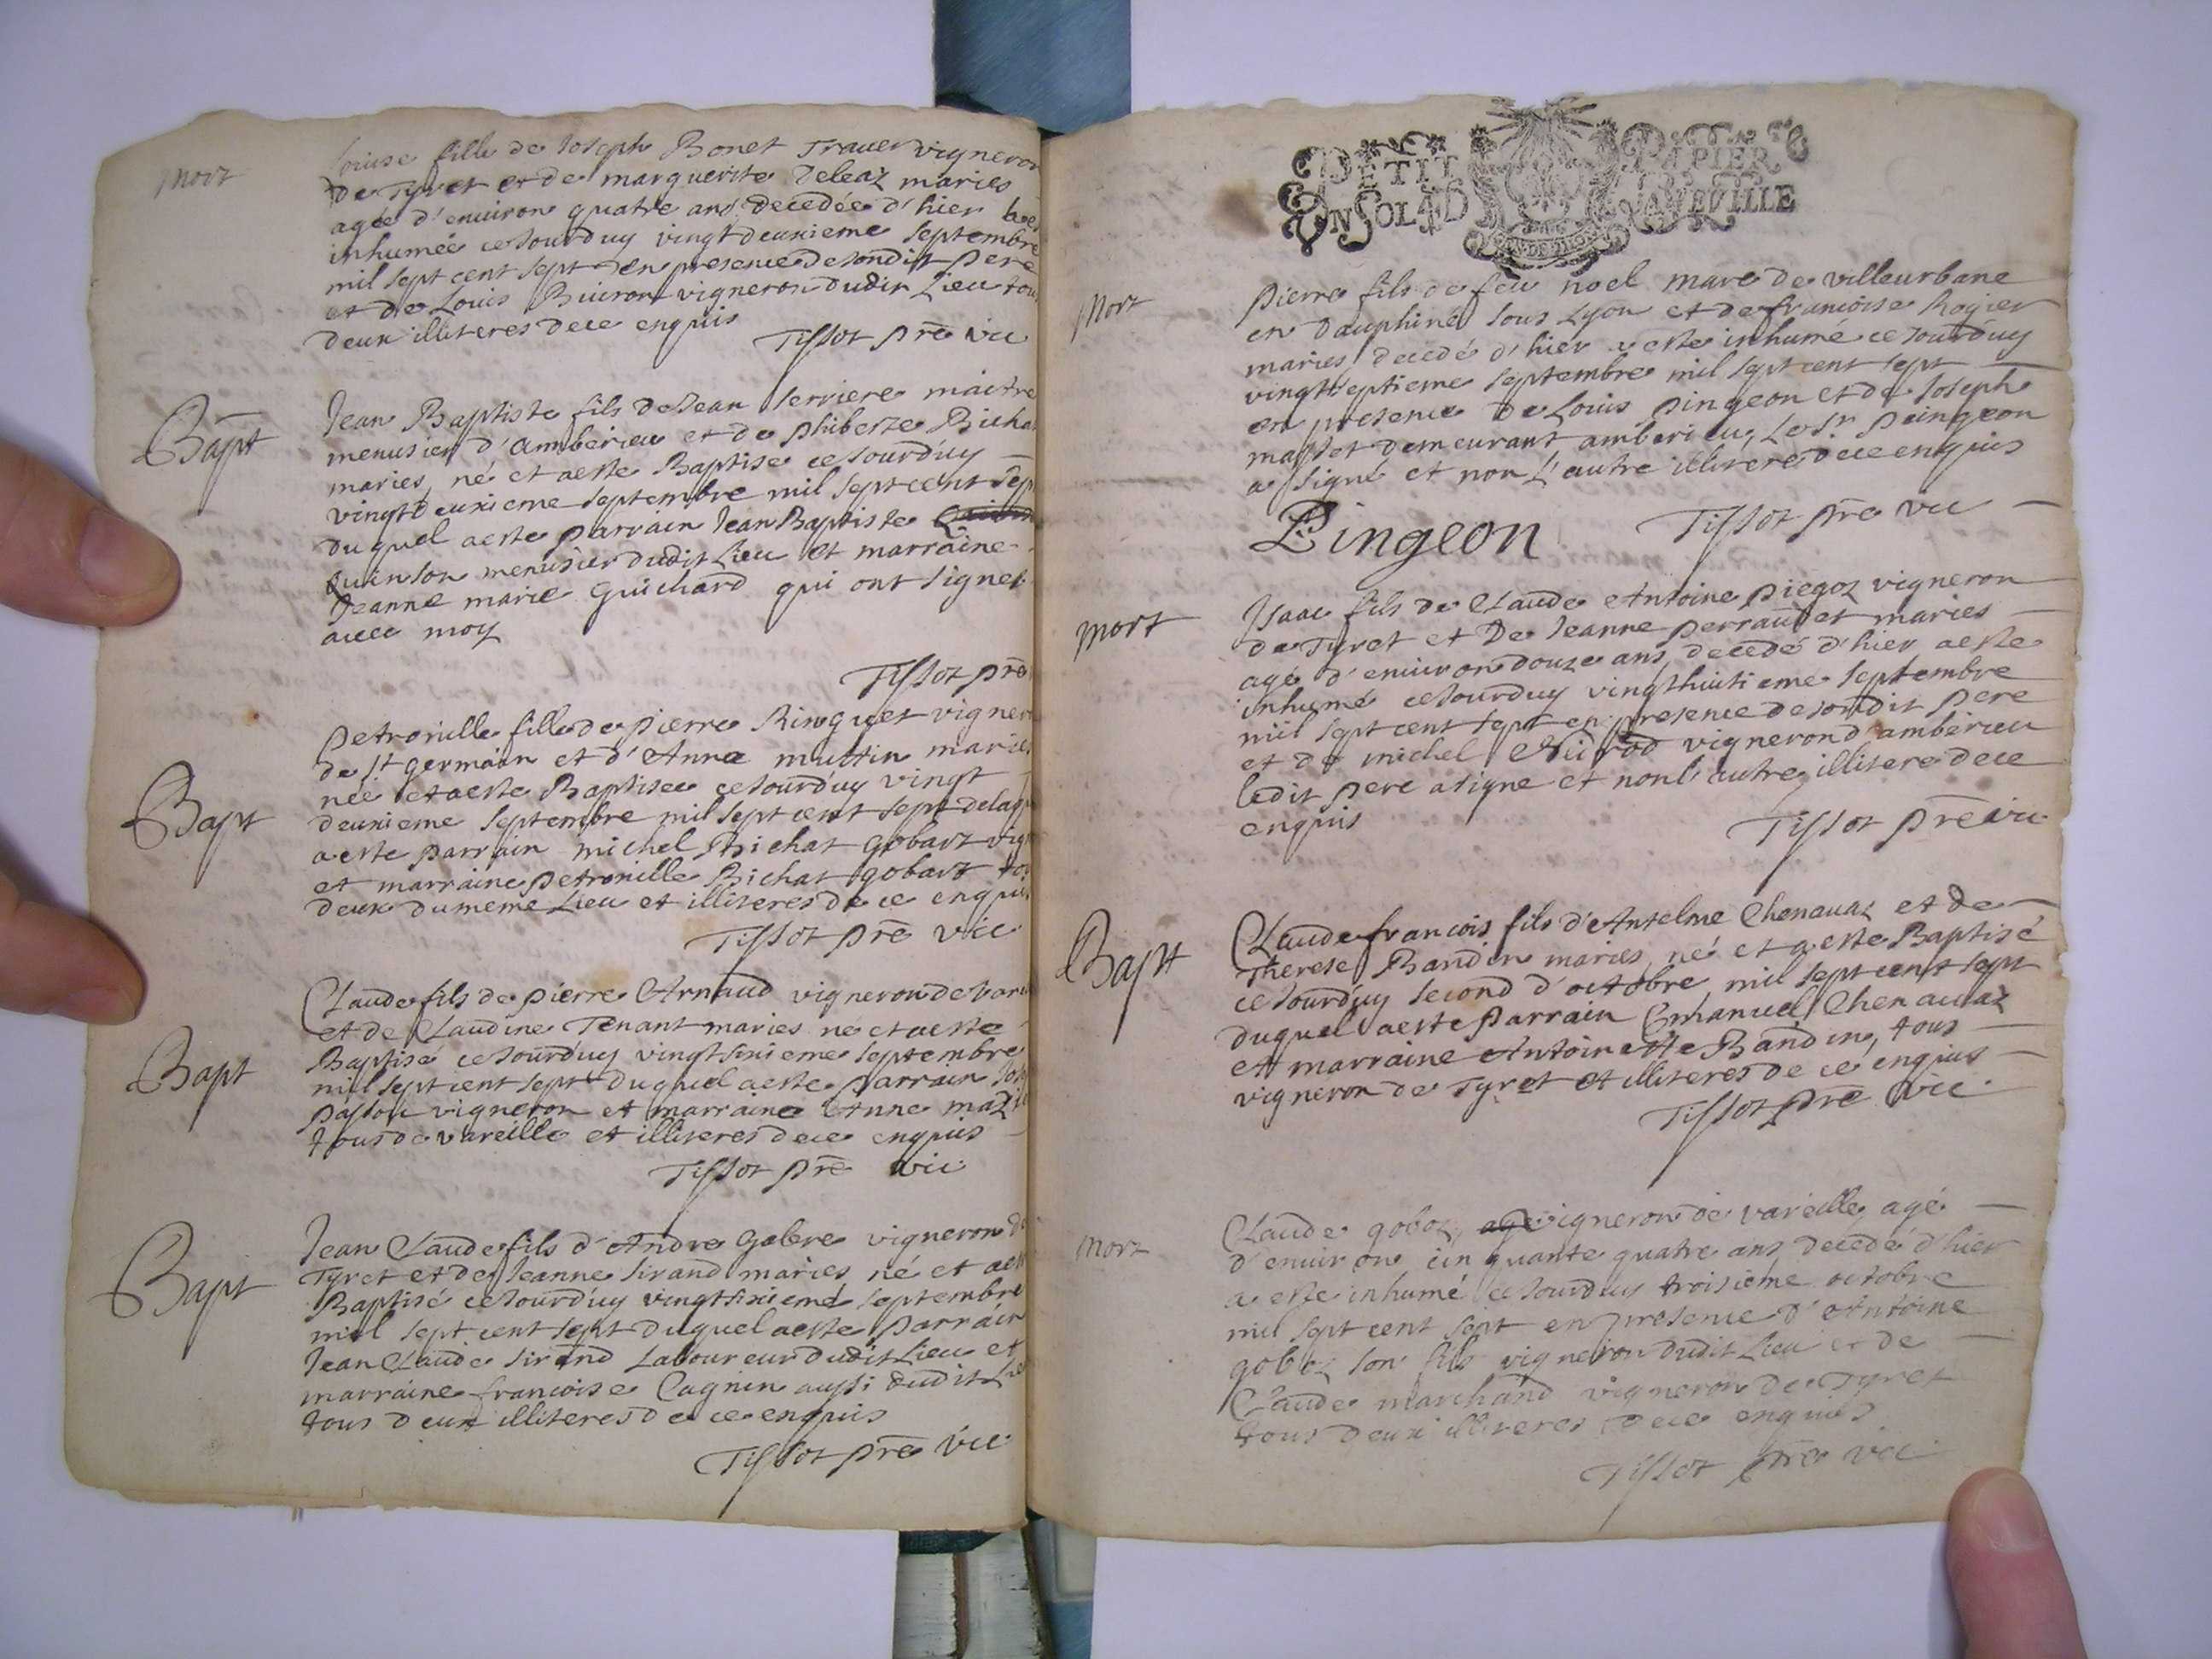 mort
Louise fille de Joseph Bonet Traver vigneron
de Tyret et de marguerite Deleaz maries
agée d'environ quatre ans decedée d'hier
inhumée ce Jourduy vingtdeuxieme Septembre
mil sept cent sept en presence de sondit pere
et de Louis Buiron vigneron dudit Lieu tous
deux illiteres de ce enquis
Tissot pre vic
Bapt
Jean Baptiste fils de Jean Serriere maitre
menusier d'Amberieu et de philberte Bicha
maries, né et a esté Baptisé ce Jourd'uy
vingtdeuxieme septembre mil sept cent sept
duquel a esté parrain Jean Baptiste
Quinson menusier dudit Lieu et marraine
Jeanne marie Guichard qui ont signer
avec moy
Tissot pre
Bapt
Petronille fille de pierre Ringuet vigneron
de St germain et d'Anne muttin maries
née et a esté Baptisée ce Jourd'uy vingt
deuxieme Septembre mil sept cent sept de laq
a esté parrain michel Bichat gobart vig
et marraine petronille Bichat gobart to
deux du meme Lieu et illiteres de ce enquis
Tissot pre vic
Bapt
Claude fils de pierre Arnaud vigneron de vare
et de Claudine Tenant maries né et a esté
Baptisé ce Jourd'uy vingtsixieme septembre
mil sept cent sept duquel a esté parrain Jos
passou vigneron et marraine Anne
tous de vareille et illiteres de ce enquis
Tissot pre vic
Bapt
Jean Claude fils d'Andre Gabre vigneron d
Tyret et de Jeanne Sirand maries né et a est
Baptisé ce Jourd'uy vingtsixieme septembre
mil sept cent sept duquel a esté parrain
Jean Claude Sirand Laboureur dudit Lieu et
marraine francoise Cagnin aussi dudit Li
tous deux illiteres de ce enquis
Tissot pre vic
PETIT PAPIER
EN SOL 4 D LA FEVILLE
mort
pierre fils de feu noel mare de villeurbane
en Dauphiné sous Lyon et de francoise Rogier
maries, decedé d'hier a esté inhumé ce Jourduy
vingtseptieme septembre mil sept cent sept
en presence de Louis pingeon et de Joseph
massot demeurant amberieu, Le Sr pingeon
a signé et non L'autre illitere de ce enquis
Pingeon Tissot pre vic
mort
Isaac fils de Claude Antoine piegoz vigneron
de Tyret et De Jeanne perraudet maries
agé d'environ douze ans, decedé d'hier a esté
inhumé ce Jourduy vingthuitieme septembre
mil sept cent sept en presence de sondit pere
et de michel vigneron d'amberieu
ledit pere a signe et non l'autre, illitere de ce
enquis
Tissot pre vic
Bapt
Claude francois fils d'Antelme Chenavaz et de
Therese Bandin maries, né et a esté Baptisé
ce Jourd'uy second d'octobre mil sept cent sept
duquel a esté parrain Emanuel Chenavaz
et marraine Antoinette Bandin, tous
vigneron de Tyret et illiteres de ce enquis
Tissot pre vic
mort
Claude goboz, agé vigneron de vareille, agé
d'environ cinquante quatre ans decedé d'hier
a esté inhumé ce Jourduy troisieme octobre
mil sept cent sept en presence d'Antoine
goboz son fils vigneron dudit Lieu et de
Claude marchand vigneron de Tyret
tous deux illiteres de ce enquis
Tissot pre vic